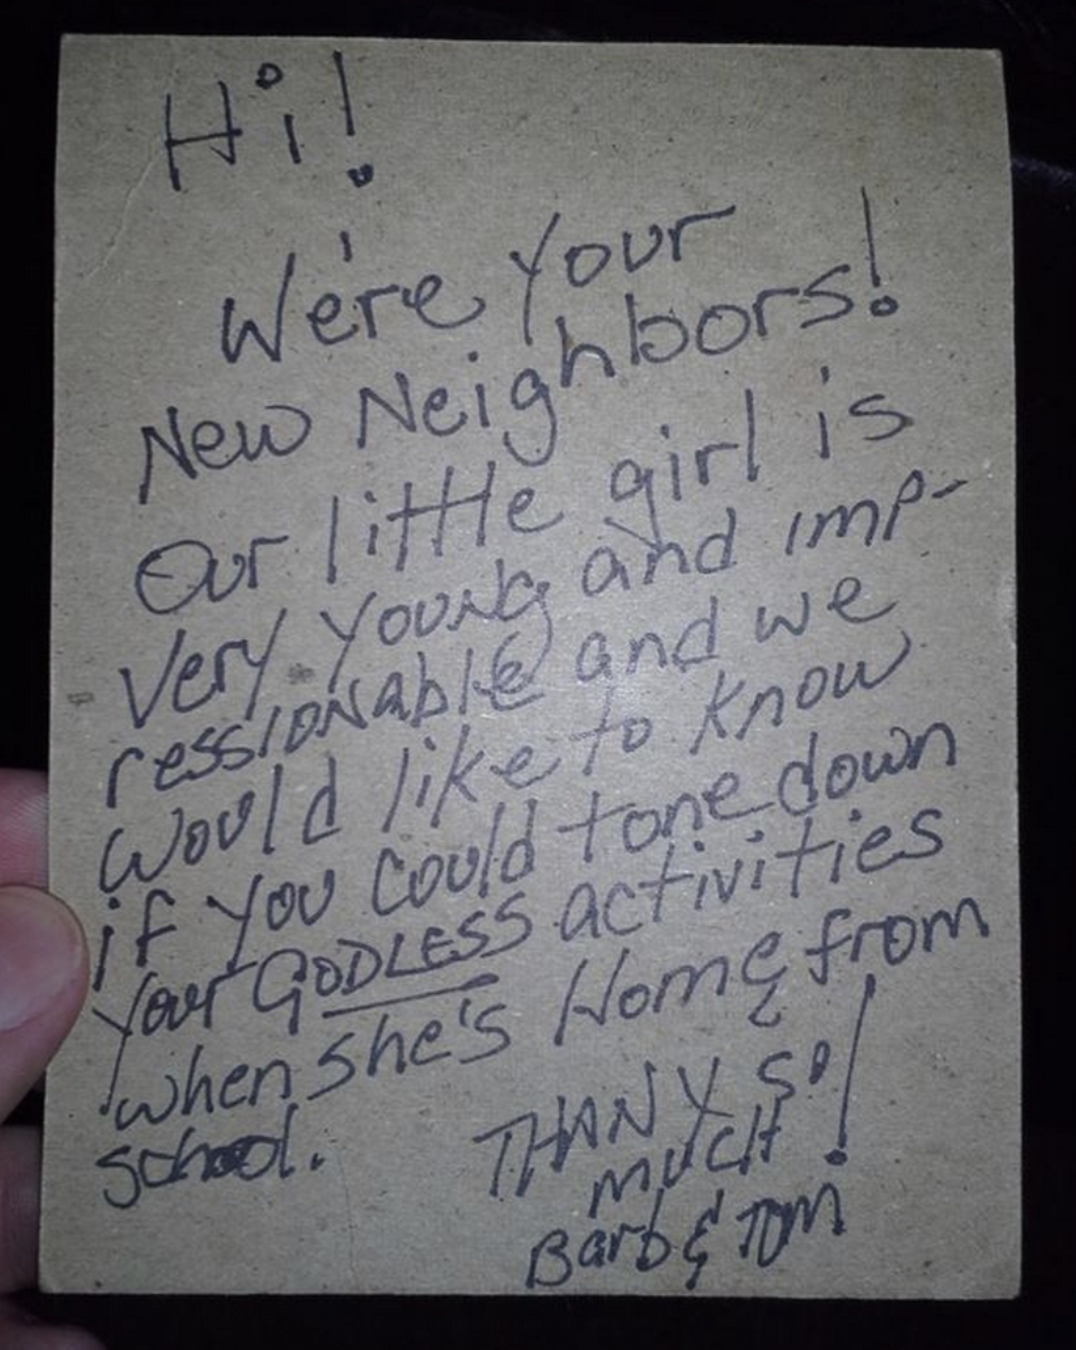 Hi!
We're your
New Neighbors!
Our little girl is
very young and imp-
ressionable and we
would like to know
if you could tone down
your GODLESS activities
when she's Home from
school.
THANX SO
MUCH!
Barb & Tom